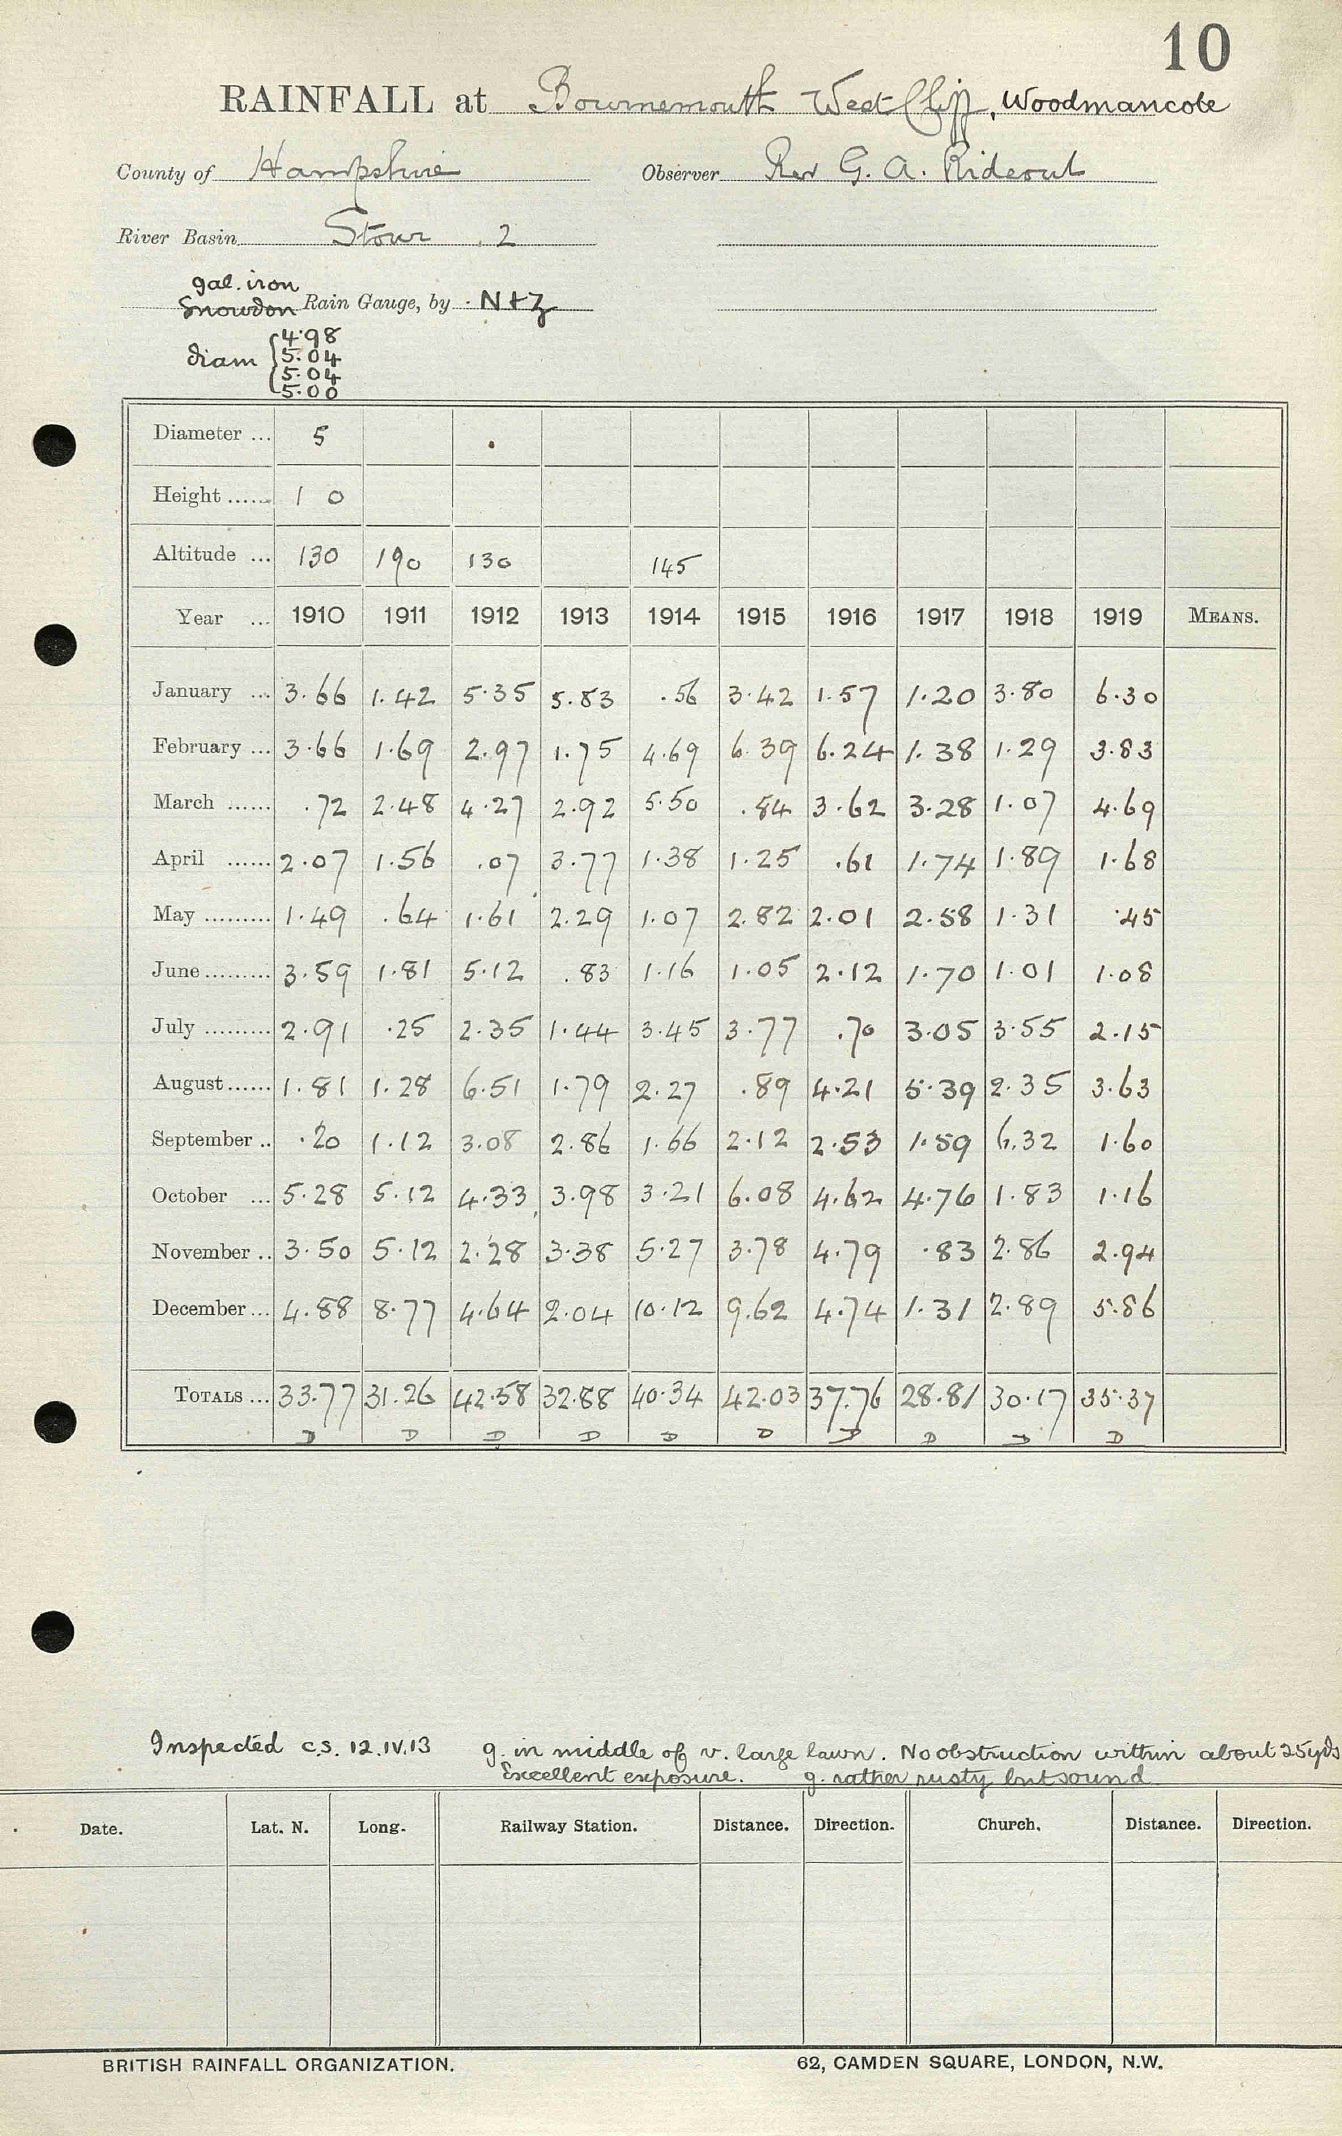 10
RAINFALL at Bournemouth West Cliff, Woodmancote
County of Hampshire Observer Rev G. A. Rideout
River Basin Stour 2
gal. iron
Snowdon Rain Gauge, by N+Z
diam 4.98
5.04
5.04
5.00
Diameter ... 5
Height ...... 1 0
Altitude ... 130 190 130 145
Year ... 1910 1911 1912 1913 1914 1915 1916 1917 1918 1919 MEANS.
January ... 3.66 1.42 5.35 5.83 .56 3.42 1.57 1.20 3.80 6.30
February ... 3.66 1.69 2.97 1.75 4.69 6.39 6.24 1.38 1.29 3.83
March ...... .72 2.48 4.27 2.92 5.50 .84 3.62 3.28 1.07 4.69
April ...... 2.07 1.56 .07 3.77 1.38 1.25 .61 1.74 1.89 1.68
May ......... 1.49 .64 1.61 2.29 1.07 2.82 2.01 2.58 1.31 .45
June ......... 3.59 1.81 5.12 .83 1.16 1.05 2.12 1.70 1.01 1.08
July ......... 2.91 .25 2.35 1.44 3.45 3.77 .70 3.05 3.55 2.15
August ...... 1.81 1.28 6.51 1.79 2.27 .89 4.21 5.39 2.35 3.63
September .. .20 1.12 3.08 2.86 1.66 2.12 2.53 1.59 6.32 1.60
October ... 5.28 5.12 4.33 3.98 3.21 6.08 4.62 4.76 1.83 1.16
November .. 3.50 5.12 2.28 3.38 5.27 3.78 4.79 .83 2.86 2.94
December ... 4.88 8.77 4.64 2.04 10.12 9.62 4.74 1.31 2.89 5.86
TOTALS ... 33.77 31.26 42.58 32.88 40.34 42.03 37.76 28.81 30.17 35.37
D D D D D D D D D D
Inspected C.S. 12.IV.13 g. in middle of v. large lawn. No obstruction within about 25yds
Excellent exposure. g. rather rusty but sound
Date. Lat. N. Long. Railway Station. Distance. Direction. Church. Distance. Direction.
BRITISH RAINFALL ORGANIZATION. 62, CAMDEN SQUARE, LONDON, N.W.